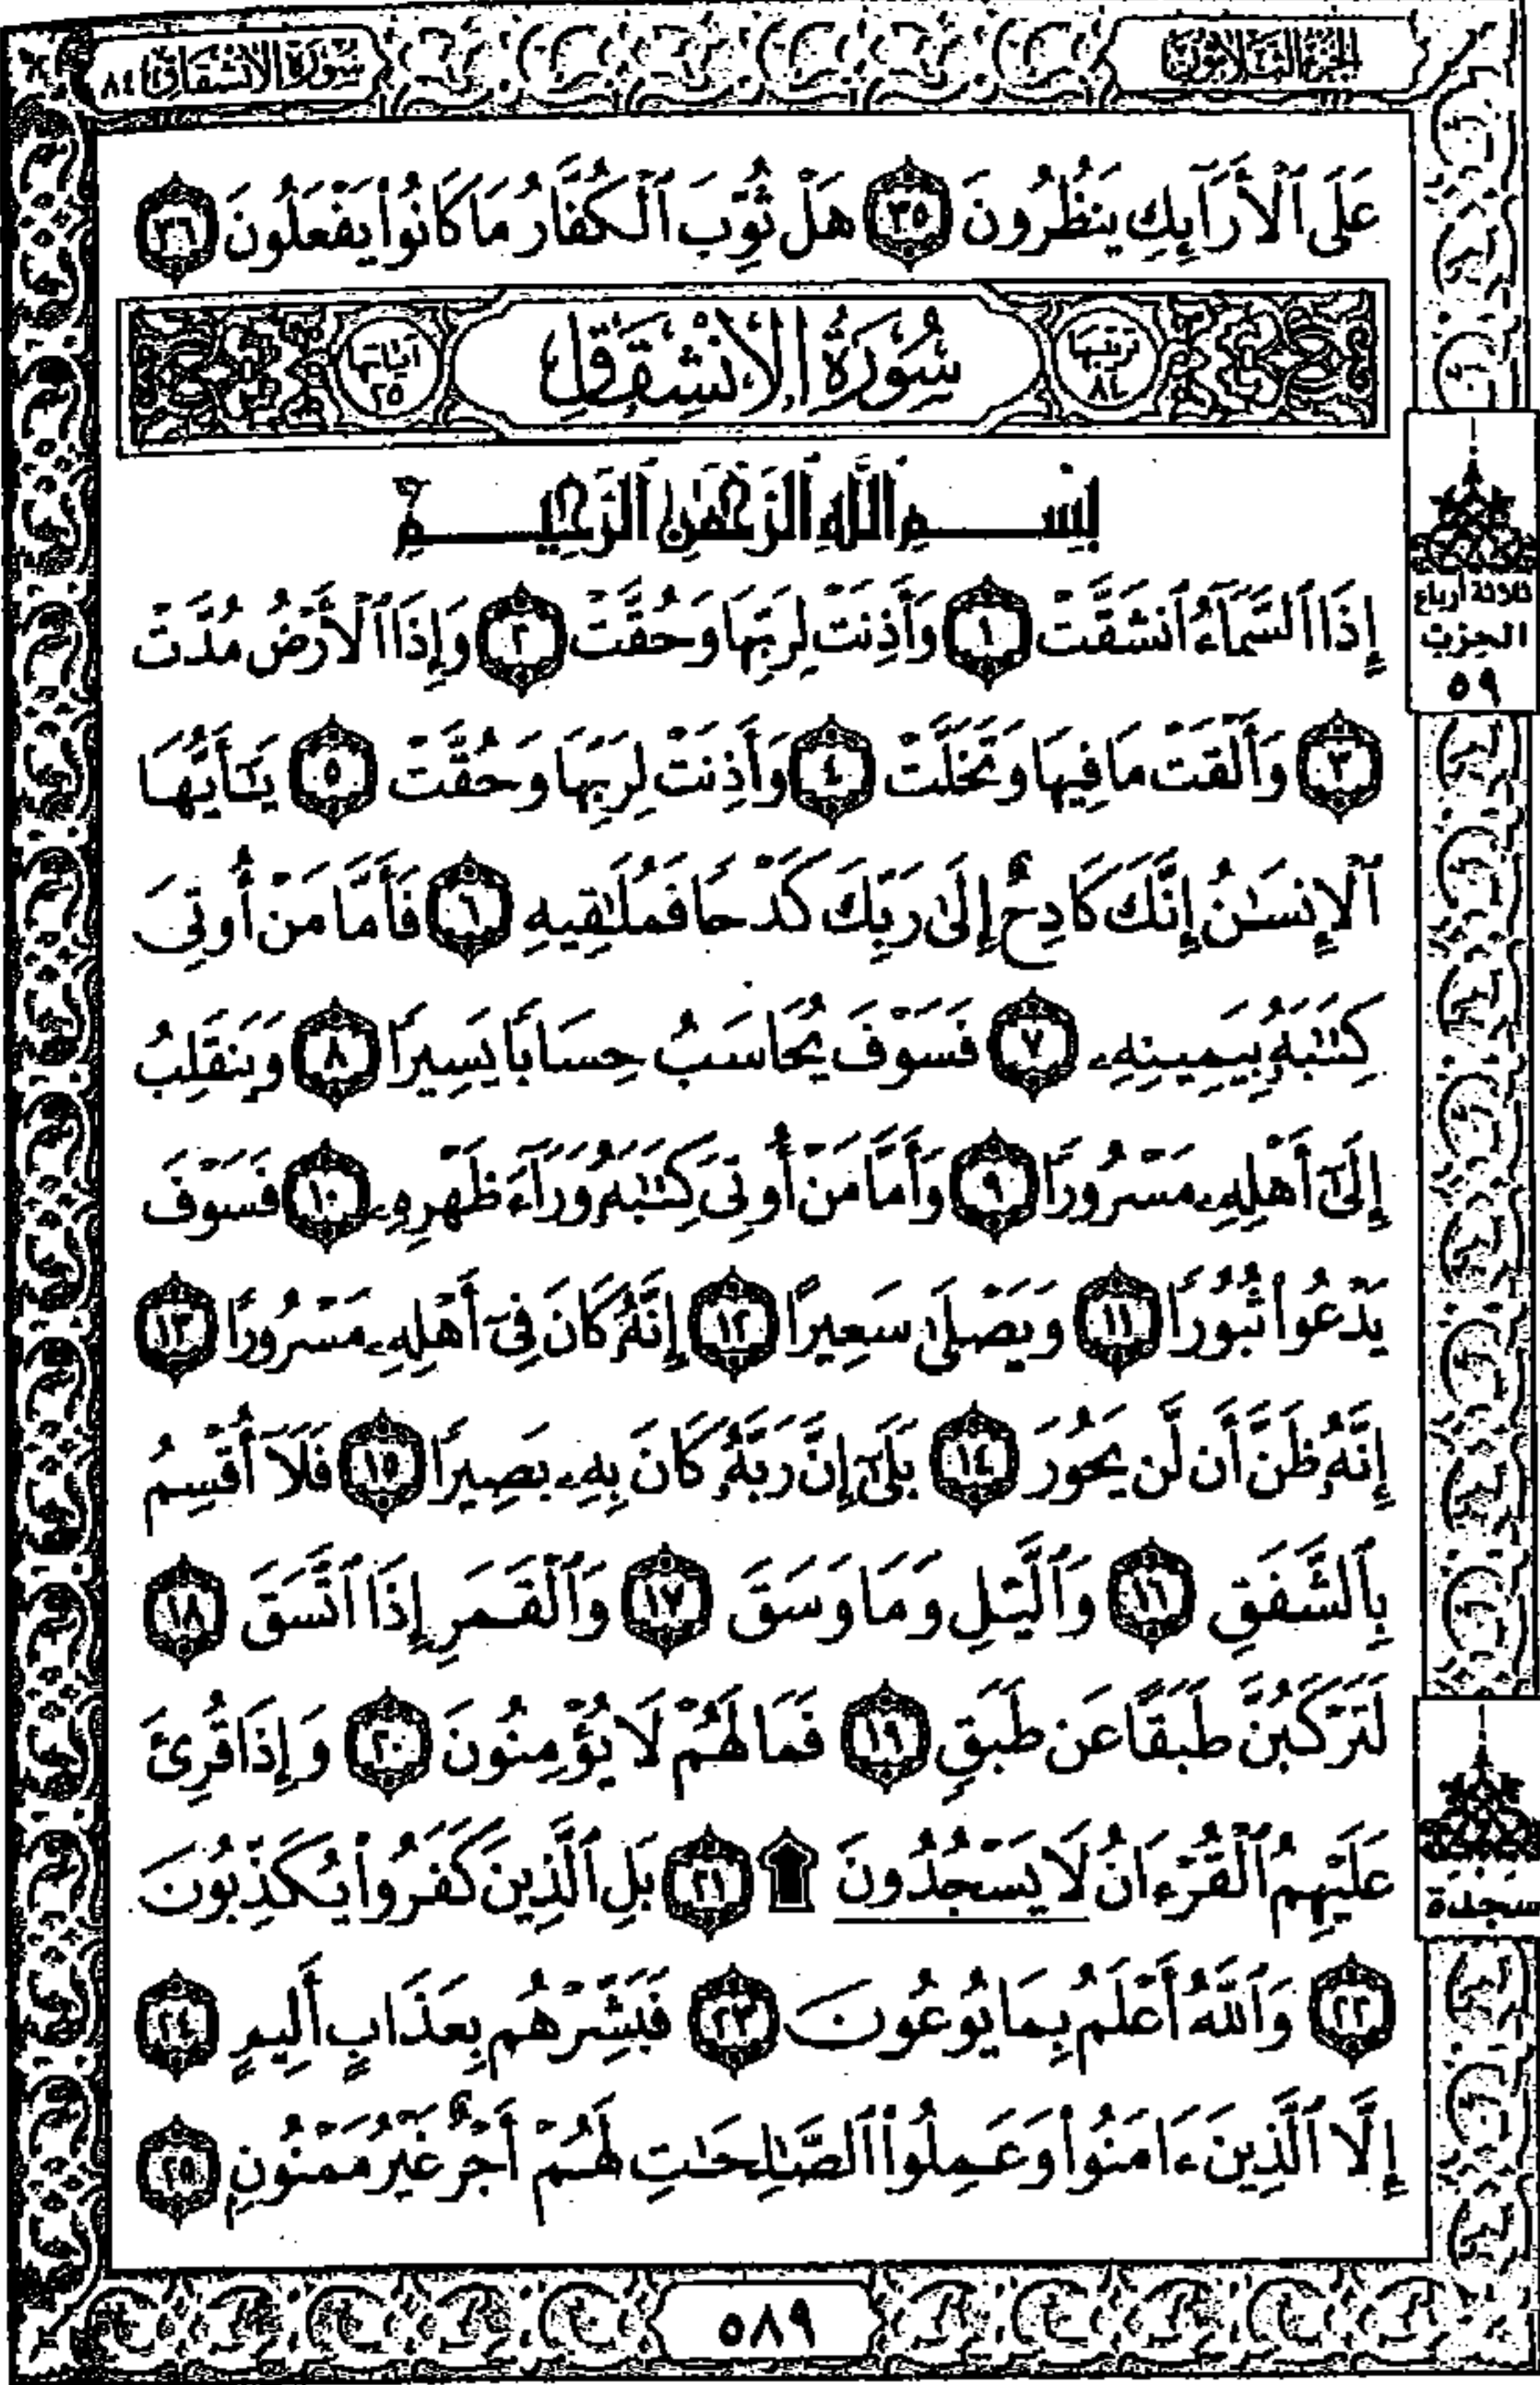 سُورَةُ الانْشِقَاقِ ٨٤
الجُزْءُ الثَّلَاثُونَ
عَلَى ٱلْأَرَآئِكِ يَنظُرُونَ ٣٥ هَلْ ثُوِّبَ ٱلْكُفَّارُ مَا كَانُوا۟ يَفْعَلُونَ ٣٦
ترتيبها ٨٤ سُورَةُ الانْشِقَاقِ آياتها ٢٥
بِسْمِ ٱللَّهِ ٱلرَّحْمَٰنِ ٱلرَّحِيمِ
إِذَا ٱلسَّمَآءُ ٱنشَقَّتْ ١ وَأَذِنَتْ لِرَبِّهَا وَحُقَّتْ ٢ وَإِذَا ٱلْأَرْضُ مُدَّتْ
٣ وَأَلْقَتْ مَا فِيهَا وَتَخَلَّتْ ٤ وَأَذِنَتْ لِرَبِّهَا وَحُقَّتْ ٥ يَٰٓأَيُّهَا
ٱلْإِنسَٰنُ إِنَّكَ كَادِحٌ إِلَىٰ رَبِّكَ كَدْحًا فَمُلَٰقِيهِ ٦ فَأَمَّا مَنْ أُوتِىَ
كِتَٰبَهُۥ بِيَمِينِهِۦ ٧ فَسَوْفَ يُحَاسَبُ حِسَابًا يَسِيرًا ٨ وَيَنقَلِبُ
إِلَىٰٓ أَهْلِهِۦ مَسْرُورًا ٩ وَأَمَّا مَنْ أُوتِىَ كِتَٰبَهُۥ وَرَآءَ ظَهْرِهِۦ ١٠ فَسَوْفَ
يَدْعُوا۟ ثُبُورًا ١١ وَيَصْلَىٰ سَعِيرًا ١٢ إِنَّهُۥ كَانَ فِىٓ أَهْلِهِۦ مَسْرُورًا ١٣
إِنَّهُۥ ظَنَّ أَن لَّن يَحُورَ ١٤ بَلَىٰٓ إِنَّ رَبَّهُۥ كَانَ بِهِۦ بَصِيرًا ١٥ فَلَآ أُقْسِمُ
بِٱلشَّفَقِ ١٦ وَٱلَّيْلِ وَمَا وَسَقَ ١٧ وَٱلْقَمَرِ إِذَا ٱتَّسَقَ ١٨
لَتَرْكَبُنَّ طَبَقًا عَن طَبَقٍ ١٩ فَمَا لَهُمْ لَا يُؤْمِنُونَ ٢٠ وَإِذَا قُرِئَ
عَلَيْهِمُ ٱلْقُرْءَانُ لَا يَسْجُدُونَ ۩ ٢١ بَلِ ٱلَّذِينَ كَفَرُوا۟ يُكَذِّبُونَ
٢٢ وَٱللَّهُ أَعْلَمُ بِمَا يُوعُونَ ٢٣ فَبَشِّرْهُم بِعَذَابٍ أَلِيمٍ ٢٤
إِلَّا ٱلَّذِينَ ءَامَنُوا۟ وَعَمِلُوا۟ ٱلصَّٰلِحَٰتِ لَهُمْ أَجْرٌ غَيْرُ مَمْنُونٍ ٢٥
ثلاثة أرباع
الحزب
٥٩
سجدة
٥٨٩